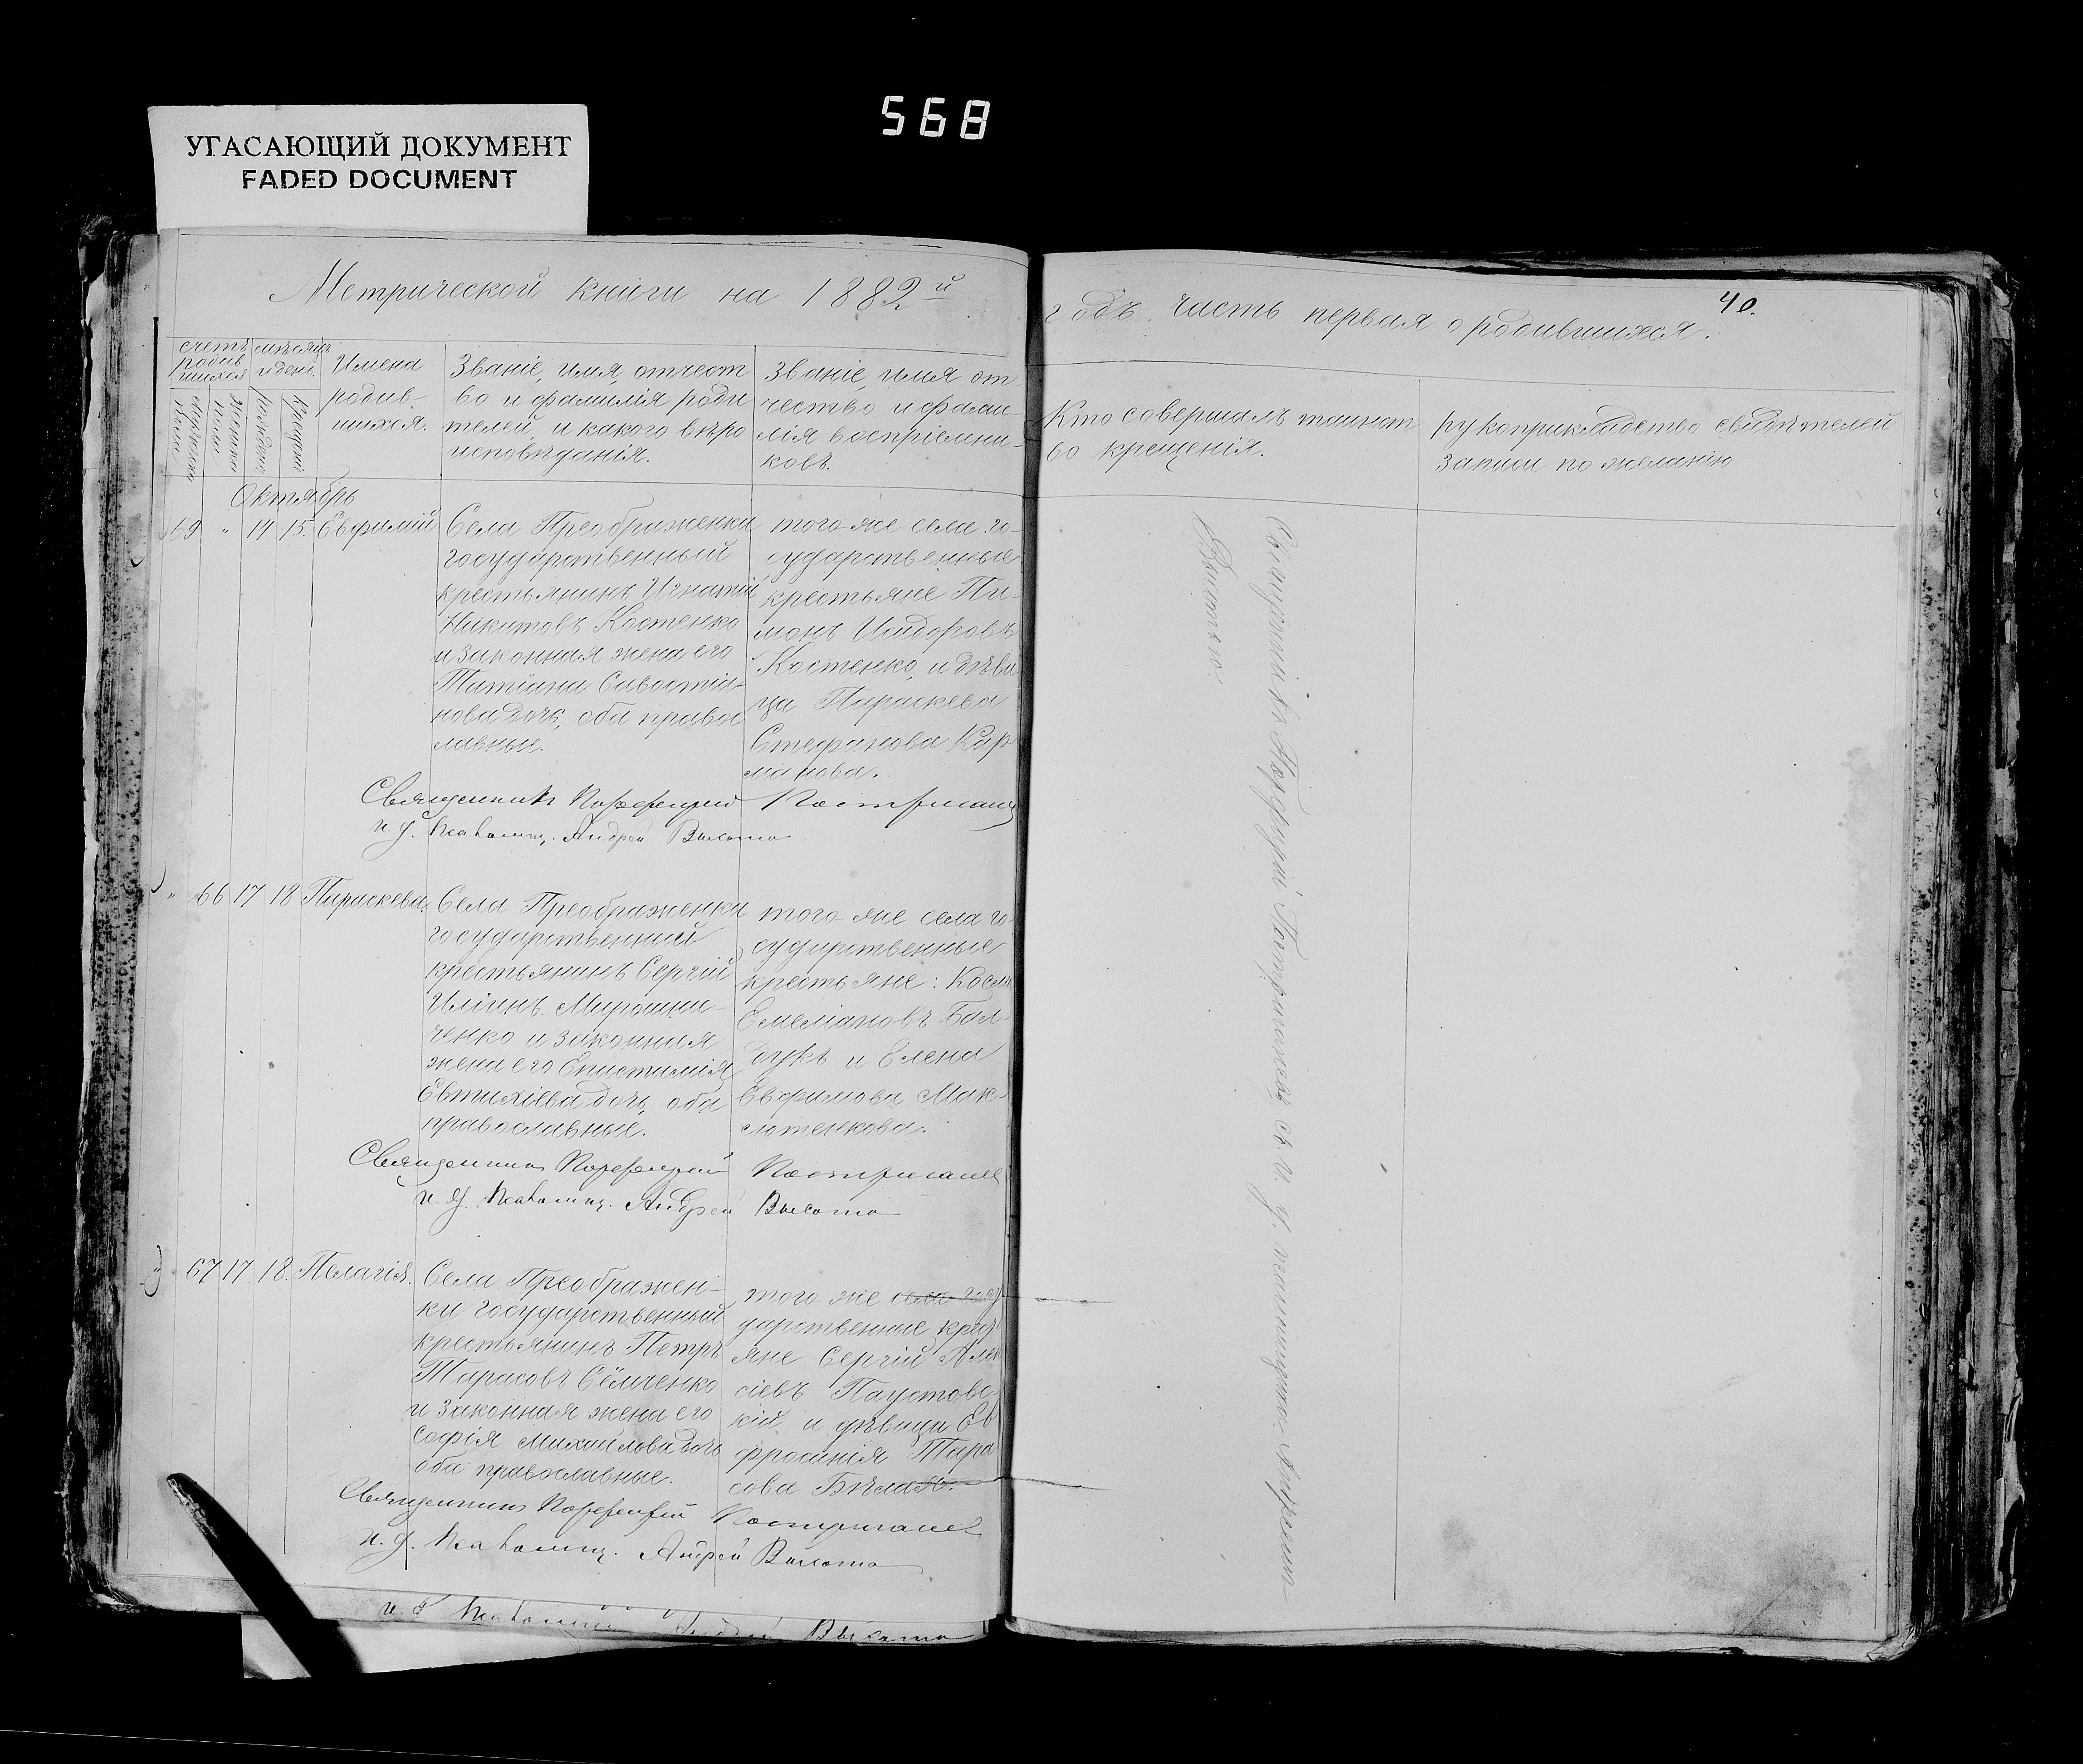 568
УГАСАЮЩИЙ ДОКУМЕНТ
FADED DOCUMENT
Метрической книги на 1882й
годъ часть первая о родившихся.
40.
счетъ родив шихся
мѣсяцъ и день.
Имена родив- шихся.
Мужеска пола
Женска пола
рожденія
крещенія
Званіе, имя, отчест
во и фамилія роди
телей, и какого вѣро
исповѣданія.
Званіе, имя от-
чество и фами-
лія воспріемни-
ковъ.
Кто совершалъ таинст
во крещенія.
рукоприкладство свидѣтелей
записи по желанію
Октябрь
69 " 14 15. Евфимій
Села Преображенки
государственный
крестьянинъ Игнатій
Никитовъ Костенко
и законная жена его
Татіана Савостія-
нова дочь, оба правос
лавные.
того же села го-
сударственные
крестьяне Пи-
монъ Исидоровъ
Костенко, и дѣви
ца Параскева
Стефанова Кар
манова.
Священникъ Порфирій
и. д. Псаломщ. Андрей Высота
" 66 17 18 Параскева.
Села Преображенки
государственный
крестьянинъ Сергій
Иліинъ Мирошни-
ченко и законная
жена его Епистимія
Евтихіева дочь, оба
православные.
того же села го-
сударственные
крестьяне: Косма
Емеліановъ Бал-
дукъ и Елена
Евфимова Мак-
сютенкова.
Священникъ Порфирій
и. д. Псаломщ. Андрей Высота
" 67 17 18. Пелагія.
Села Преображен-
ки государственный
крестьянинъ Петръ
Тарасовъ Сёмченко
и законная жена его
Софія Михайлова дочь
оба православные.
того же
дарственные
яне Сергій Алек
сіевъ Паустовс
кій и дѣвица Ев
фросинія Тара
сова Бѣлая.
Священникъ Порфирій
и. д. Псаломщ. Андрей Высота
и. д. Псаломщ. Андрей Высота
Священникъ Порфирій
и. д. псаломщика Андрей
Высота